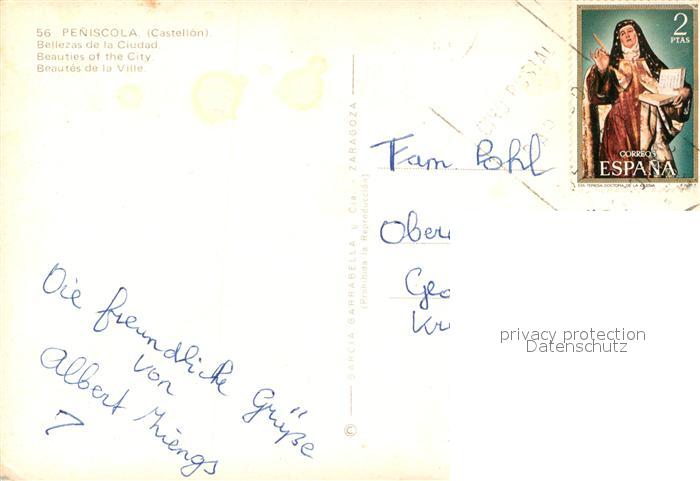 56 PEÑISCOLA. (Castellón).
Bellezas de la Ciudad.
Beauties of the City.
Beautés de la Ville.
2
PTAS
CORREOS
ESPAÑA
STA. TERESA, DOCTORA DE LA IGLESIA
Fam. Pohl
Ober
Geo
Kr
Die freundliche Grüße
von
Albert
© GARCIA GARRABELLA y Cia. - ZARAGOZA
(Prohibida la Reproducción)
privacy protection
Datenschutz